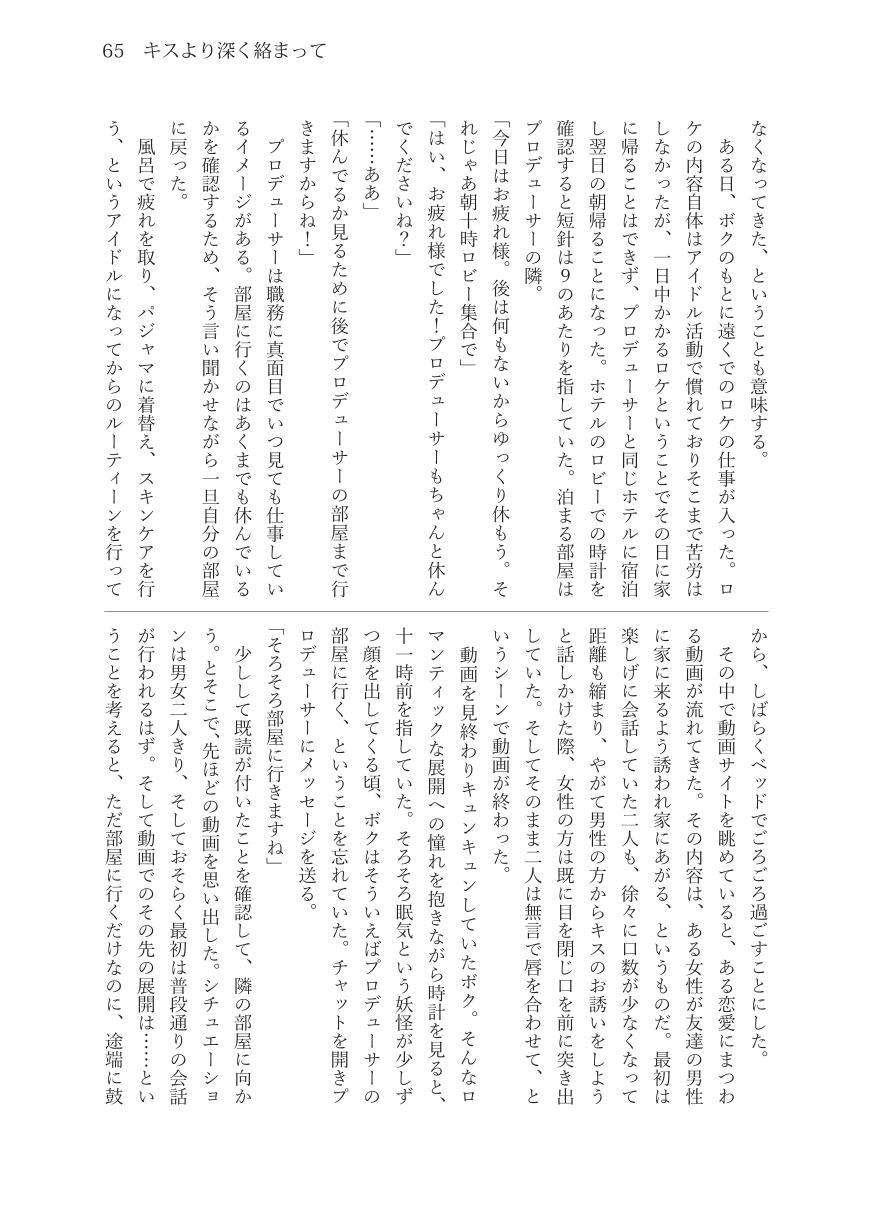 65 キスより深く絡まって
なくなってきた、ということも意味する。
　ある日、ボクのもとに遠くでのロケの仕事が入った。ロ
ケの内容自体はアイドル活動で慣れておりそこまで苦労は
しなかったが、一日中かかるロケということでその日に家
に帰ることはできず、プロデューサーと同じホテルに宿泊
し翌日の朝帰ることになった。ホテルのロビーでの時計を
確認すると短針は９のあたりを指していた。泊まる部屋は
プロデューサーの隣。
「今日はお疲れ様。後は何もないからゆっくり休もう。そ
れじゃあ朝十時ロビー集合で」
「はい、お疲れ様でした！プロデューサーもちゃんと休ん
でくださいね？」
「……ああ」
「休んでるか見るために後でプロデューサーの部屋まで行
きますからね！」
　プロデューサーは職務に真面目でいつ見ても仕事してい
るイメージがある。部屋に行くのはあくまでも休んでいる
かを確認するため、そう言い聞かせながら一旦自分の部屋
に戻った。
　風呂で疲れを取り、パジャマに着替え、スキンケアを行
う、というアイドルになってからのルーティーンを行って
から、しばらくベッドでごろごろ過ごすことにした。
　その中で動画サイトを眺めていると、ある恋愛にまつわ
る動画が流れてきた。その内容は、ある女性が友達の男性
に家に来るよう誘われ家にあがる、というものだ。最初は
楽しげに会話していた二人も、徐々に口数が少なくなって
距離も縮まり、やがて男性の方からキスのお誘いをしよう
と話しかけた際、女性の方は既に目を閉じ口を前に突き出
していた。そしてそのまま二人は無言で唇を合わせて、と
いうシーンで動画が終わった。
　動画を見終わりキュンキュンしていたボク。そんなロ
マンティックな展開への憧れを抱きながら時計を見ると、
十一時前を指していた。そろそろ眠気という妖怪が少しず
つ顔を出してくる頃、ボクはそういえばプロデューサーの
部屋に行く、ということを忘れていた。チャットを開きプ
ロデューサーにメッセージを送る。
「そろそろ部屋に行きますね」
　少しして既読が付いたことを確認して、隣の部屋に向か
う。とそこで、先ほどの動画を思い出した。シチュエーショ
ンは男女二人きり、そしておそらく最初は普段通りの会話
が行われるはず。そして動画でのその先の展開は……とい
うことを考えると、ただ部屋に行くだけなのに、途端に鼓